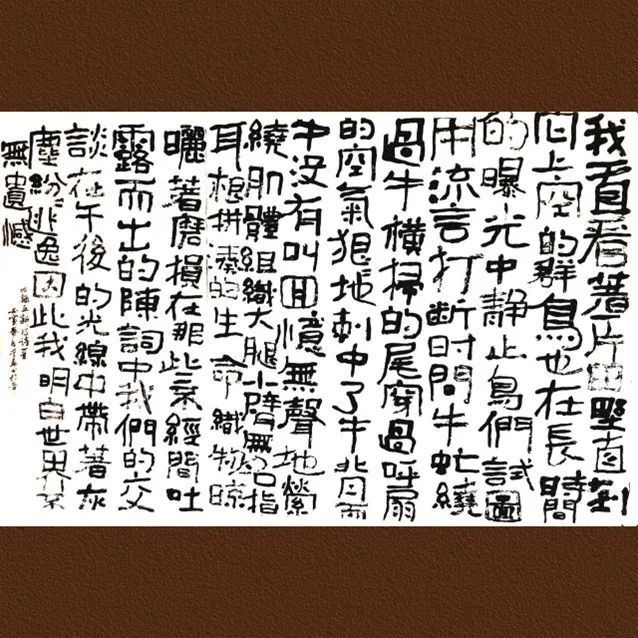 我看着著片田野直到
它上空的群鳥也在長時間
的曝光中靜止鳥們試圖
用流言打斷時間牛虻繞
過牛橫掃的尾穿過呼扇
的空氣狠地刺中了牛背而
牛没有叫回憶無聲地縈
繞肌體組織大腿小臂無名指
耳根拼湊的生命織物晾
曬著磨損在那些未經間吐
露而出的陳詞中我們的交
談在午後的光線中帶著灰
塵紛逃逸因此我明白世界
無遺憾